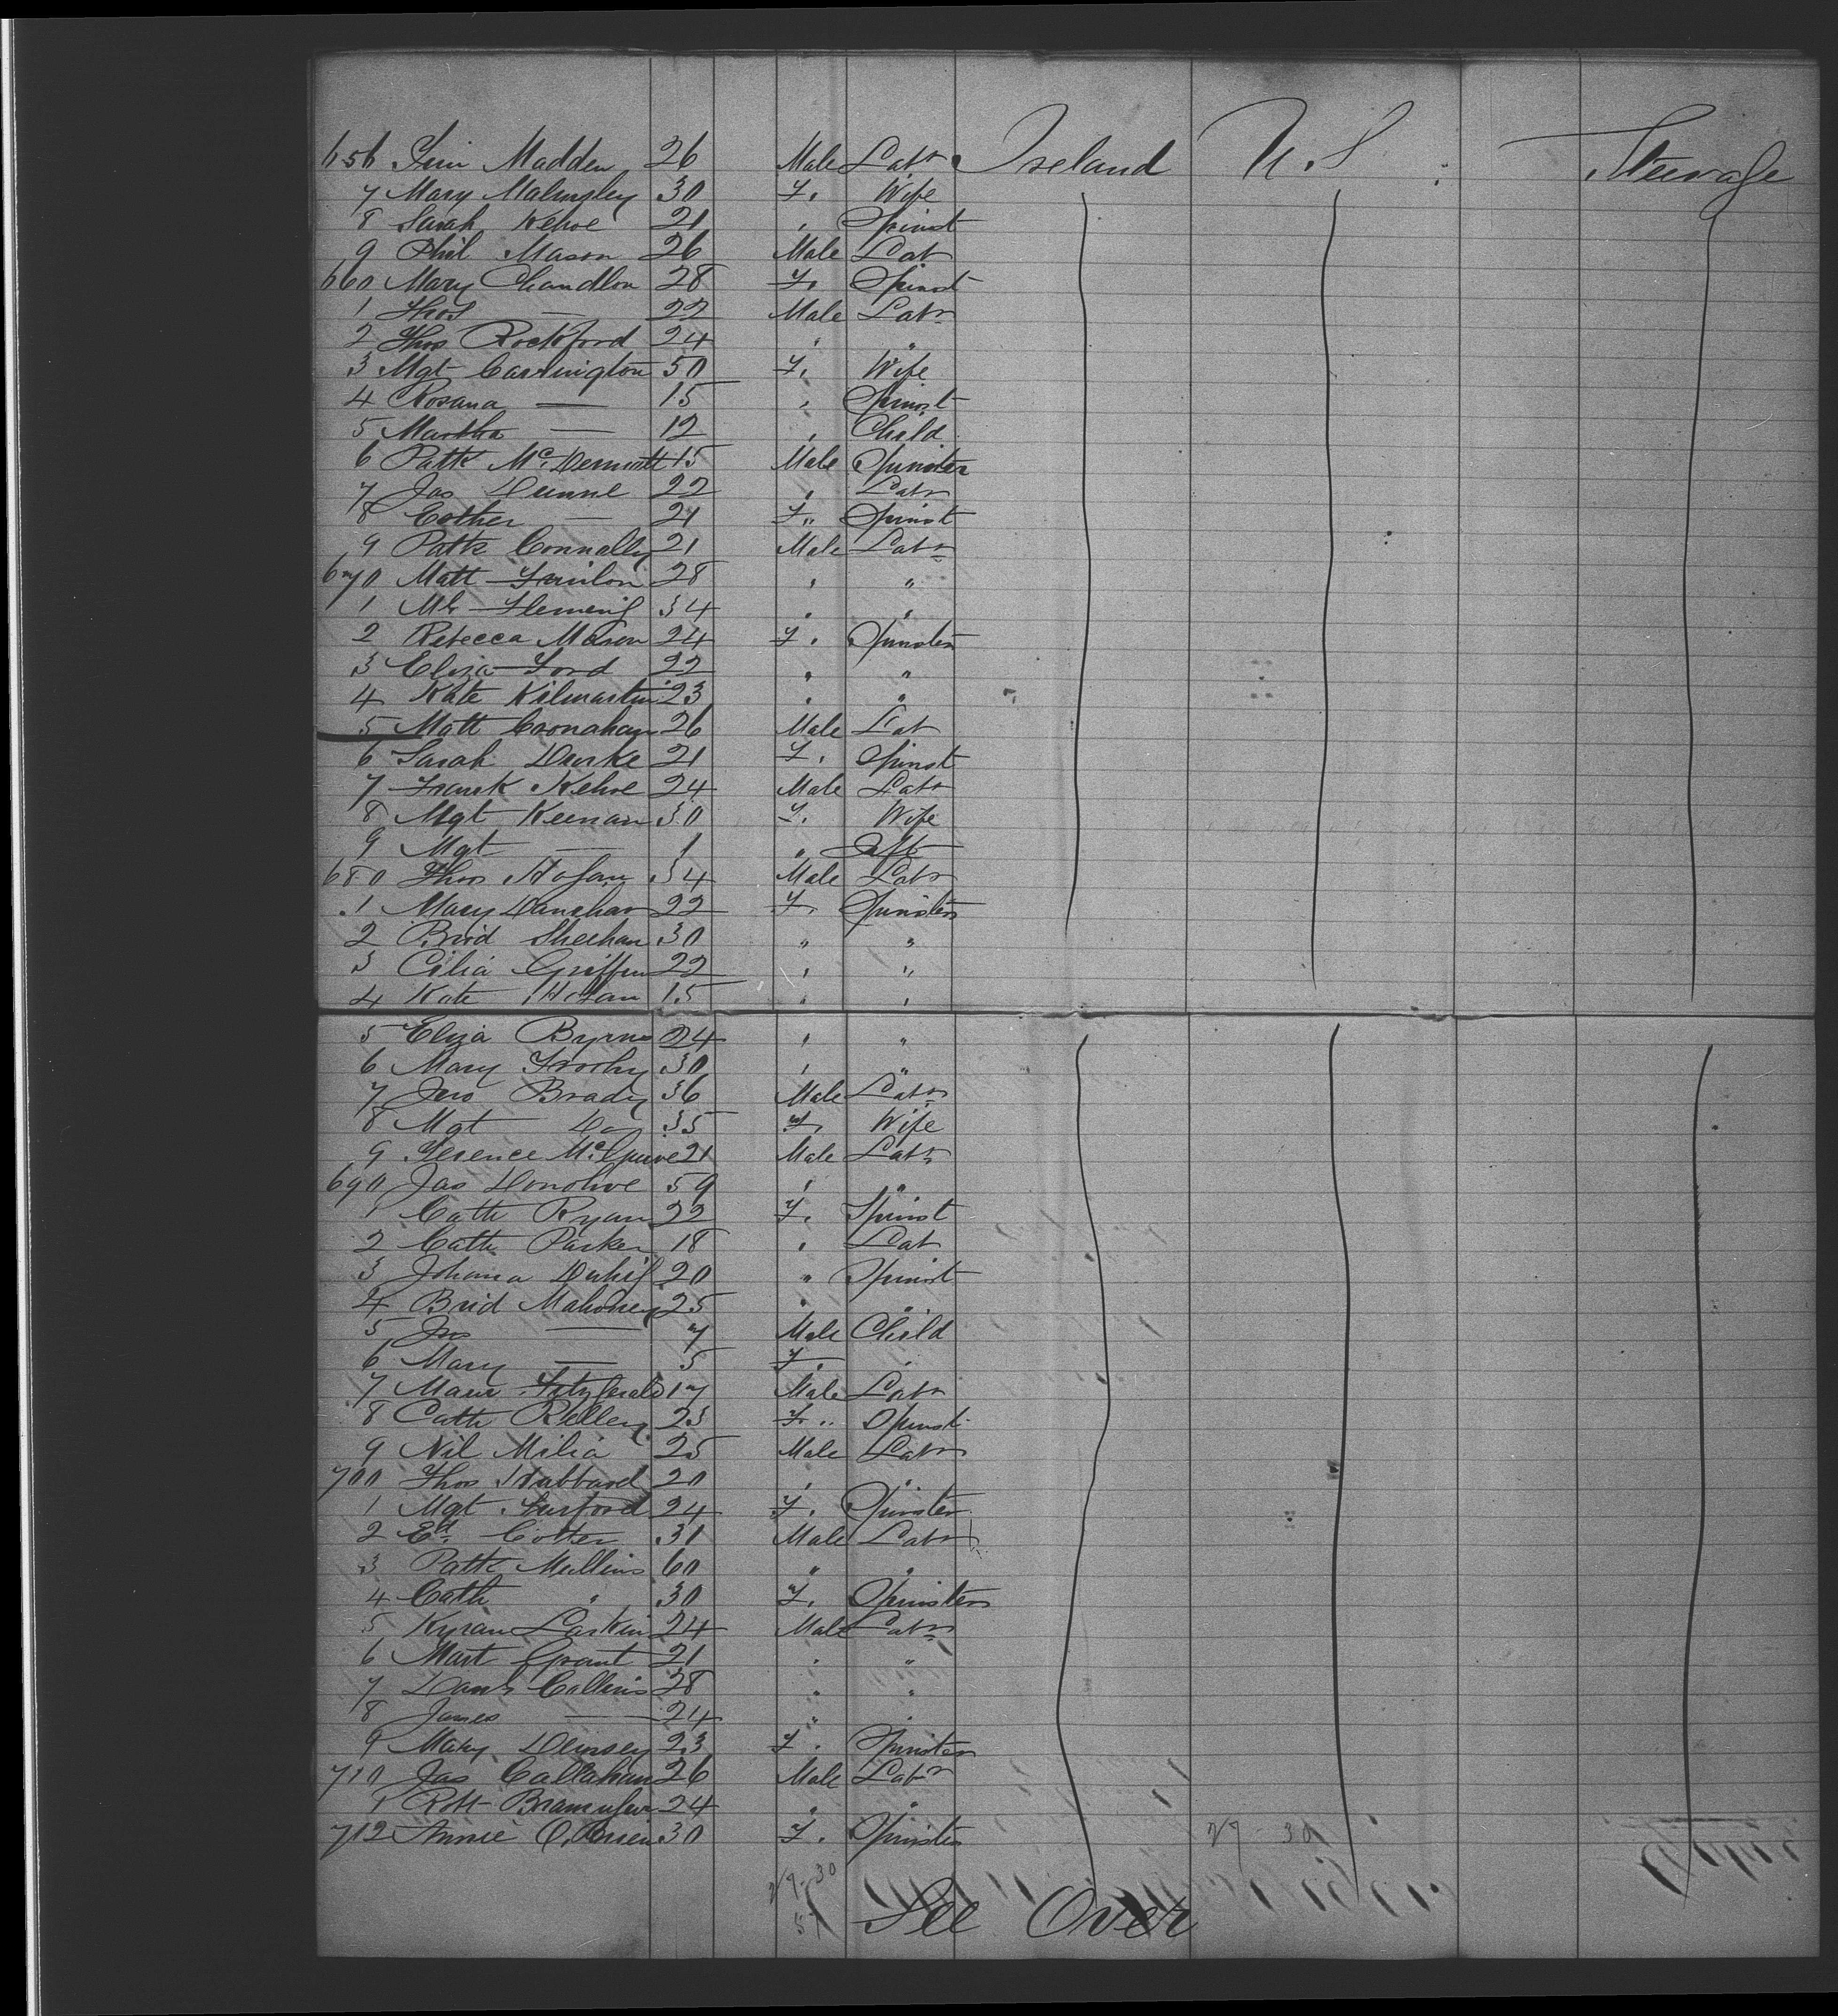 656 Jim Madden 26 Male Labr Ireland U.S Steerage
7 Mary Malmsley 30 F. Wife
8 Sarah Kehoe 21 " Spinst
9 Phil Mason 26 Male Lab
660 Mary Chandlon 28 F. Spinst
1 Thos — 22 Male Labr
2 Thos Rockford 24 " "
3 Mgt Carrington 50 F. Wife
4 Rosana — 15 " Spinst
5 Martha — 12 " Child
6 Patk McDermott 15 Male Spinster
7 Jas Dunne 22 " Labr
8 Esther — 21 F. " Spinst
9 Patk Connally 21 Male Labr
670 Matt 28 " "
1 Ml Fleming 34 " "
2 Rebecca Mason 24 F. Spinster
3 Eliza Ford 22 " "
4 Kate Kilmartin 23 " "
5 Matt Coonahan 26 Male Lab
6 Sarah Durke 21 F. Spinst
7 Frank Kehoe 24 Male Labr
8 Mgt Keenan 30 F. Wife
9 Mgt — 1 "
680 Thos Hogan 34 Male Labr
1 Mary 22 F. Spinster
2 Brid Sheehan 30 " "
3 Celia Griffin 22 " "
4 Kate Hogan 15 " "
5 Eliza Byrne 24 " "
6 Mary 30 " "
7 Jno Brady 36 Male Labr
8 Mgt Do 35 F. Wife
9 Terence McGuire 21 Male Labr
690 Jas Donohoe 59 " "
1 Cath Ryan 22 F. Spinst
2 Cath Parker 18 " Lab
3 Johana Duhig 20 " Spinst
4 Brid Mahoney 25 " "
5 Jno — 7 Male Child
6 Mary — 5 F. "
7 Maur Fitzgerald 17 Male Labr
8 Cath Relley 23 F. " Spinst
9 Nil Milia 25 Male Labr
700 Thos Hubbard 20 " "
1 Mgt 24 F. Spinster
2 Ed. Cotter 31 Male Labr
3 Patk Mullins 60 " "
4 Cath " 30 F. Spinster
5 Kyran Larkin 24 Male Labr
6 Mart Grant 21 " "
7 Danl Collins 28 " "
8 James — 24 " "
9 Mary Demsey 23 F. Spinster
710 Jas Callahan 26 Male Labr
1 Robt 24 " "
712 Annie O'Brien 30 F. Spinster 27-30
27-30
57
See Over